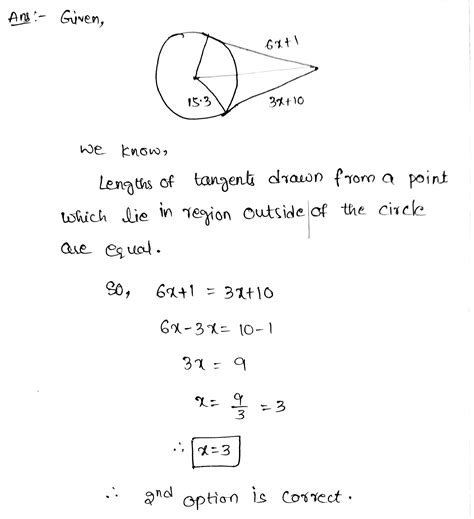 Ans:- Given,
6x+1
15.3
3x+10
We know,
Lengths of tangents drawn from a point
which lie in region outside of the circle
are equal.
So, 6x+1 = 3x+10
6x-3x= 10-1
3x = 9
x= 9/3 = 3
∴ x=3
∴ 2nd option is correct.